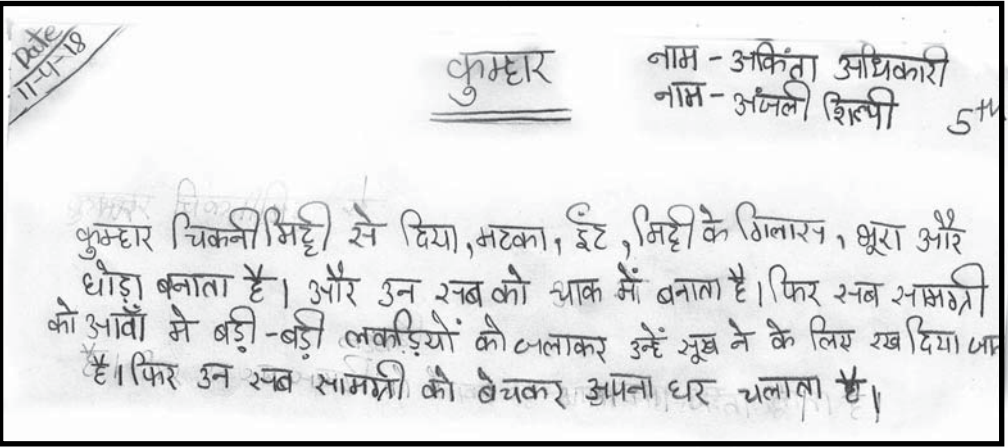 Date
11-4-18
कुम्हार
नाम - अकिंता अधिकारी
नाम - अंजली शिल्पी 5th
कुम्हार चिकनी मिट्टी से दिया, मटका, ईंट, मिट्टी के गिलास, भूरा और
घोड़ा बनाता है। और उन सब को चाक में बनाता है। फिर सब सामग्री
को आवाँ मे बड़ी-बड़ी लकड़ियों को जलाकर उन्हें सूख ने के लिए रख दिया जा
है। फिर उन सब सामग्री को बेचकर अपना घर चलाता है।